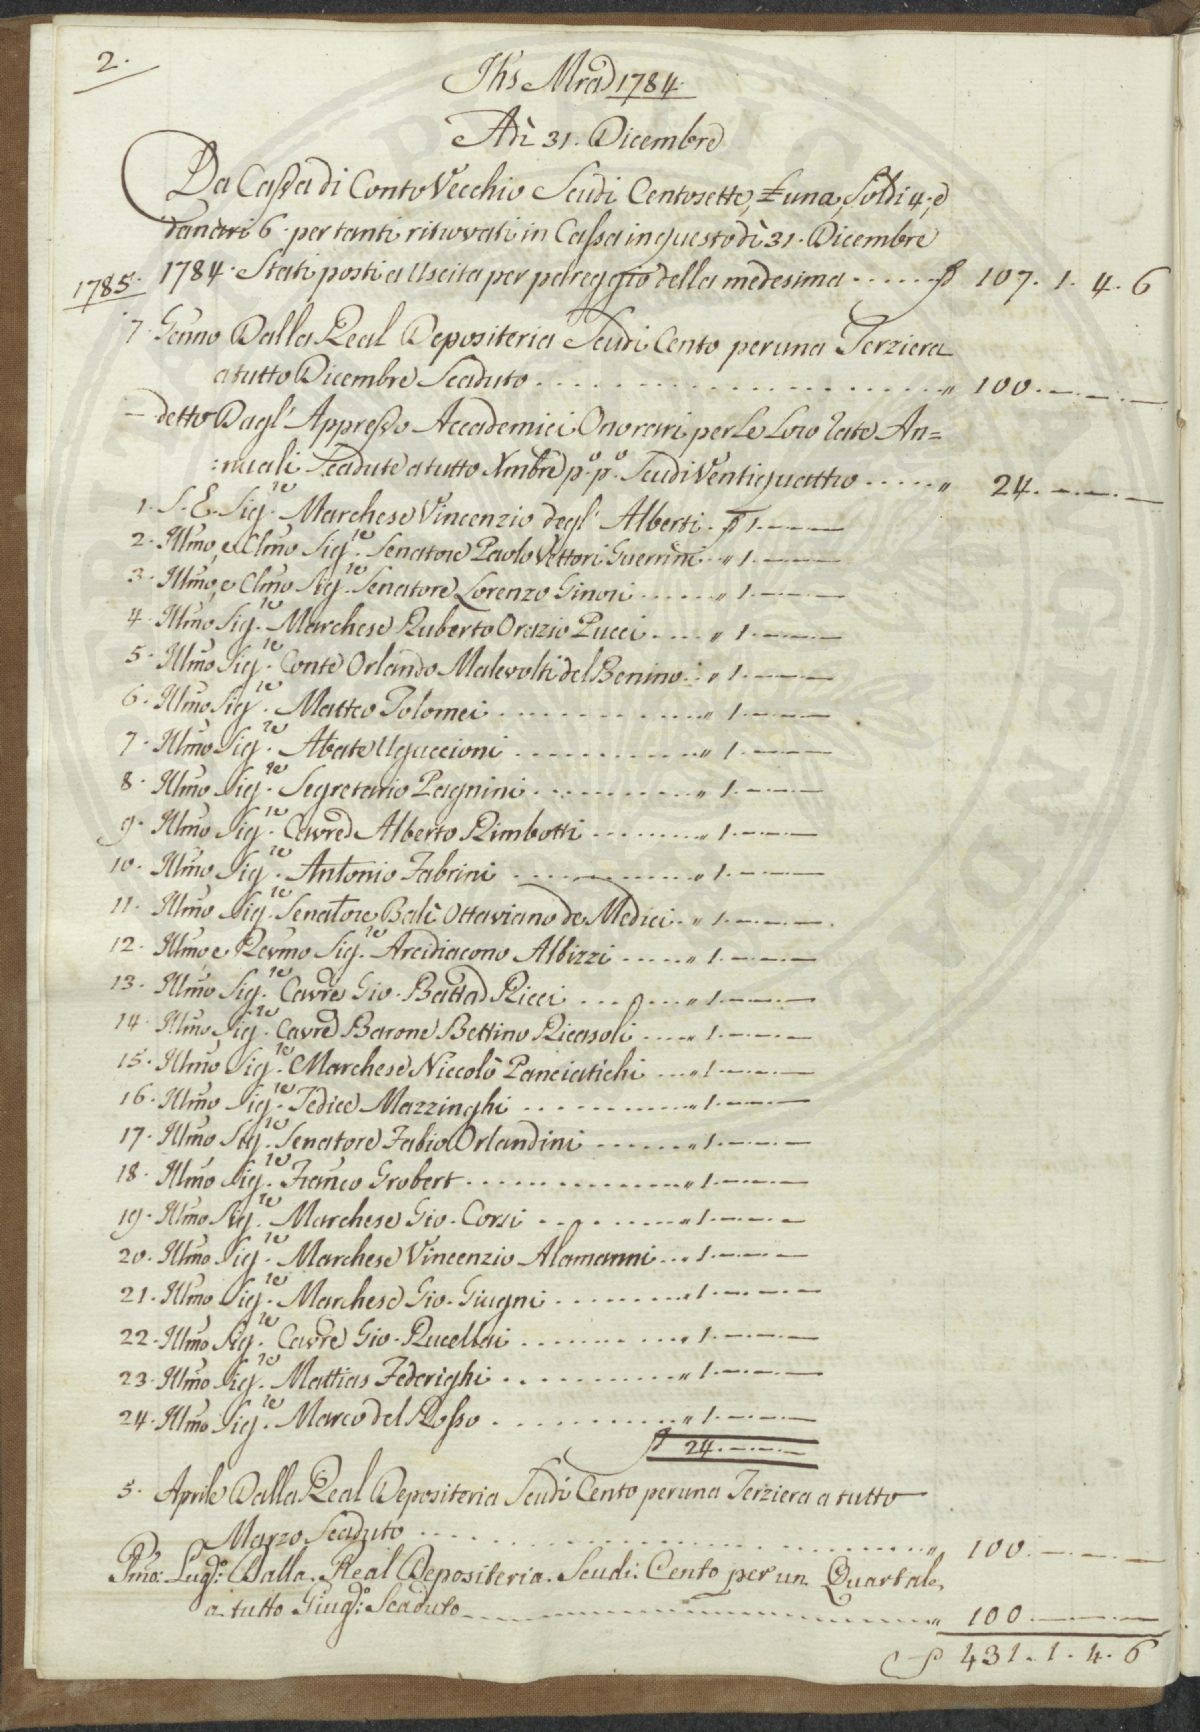 2.
Jhs Mrad 1784.
Adì 31. Dicembre
Da Cassa di Conto Vecchio Scudi Centosette, £ una, Soldi 4., e
danari 6. per tanti ritrovati in Cassa in questo dì 31. Dicembre
1784. Stati posti a Uscita per pareggio della medesima ...... ƒ 107. 1. 4. 6
1785.
7. Genno Dalla Real Depositeria Scudi Cento per una Terziera
a tutto Dicembre Scaduto ...... " 100. — . — . —
— detto Dagl' Appresso Accademici Onorari per Le Loro Rate An=
:nuali Scadute a tutto Nmbre p.º p.º Scudi Ventiquattro ..... " 24. — . — . —
1. S. E. Sig.re Marchese Vincenzio degl' Alberti . ƒ 1. — . — . —
2. Illmo, e Clmo Sig.re Senatore Paolo Vettori Guerrini .. " 1. — . — . —
3. Illmo, e Clmo Sig.re Senatore Lorenzo Ginori ...... " 1. — . — . —
4. Illmo Sig.re Marchese Ruberto Orazio Pucci ..... " 1. — . — . —
5. Illmo Sig.re Conte Orlando Malevolti del Benino .. " 1. — . — . —
6. Illmo Sig.re Matteo Tolomei ............ " 1. — . — . —
7. Illmo Sig.re Abate Uguccioni ............ " 1. — . — . —
8. Illmo Sig.re Segretario Pagnini .......... " 1. — . — . —
9. Illmo Sig.re Cavre Alberto Rimbotti ........ " 1. — . — . —
10. Illmo Sig.re Antonio Fabrini ............ " 1. — . — . —
11. Illmo Sig.re Senatore Balì Ottaviano de Medici .. " 1. — . — . —
12. Illmo e Revmo Sig.re Arcidiacono Albizzi ..... " 1. — . — . —
13. Illmo Sig.re Cavre Gio. Batta Ricci ........ " 1. — . — . —
14. Illmo Sig.re Cavre Barone Bettino Ricasoli .... " 1. — . — . —
15. Illmo Sig.re Marchese Niccolò Panciatichi ... " 1. — . — . —
16. Illmo Sig.re Fedice Mazzinghi ............ " 1. — . — . —
17. Illmo Sig.re Senatore Fabio Orlandini ....... " 1. — . — . —
18. Illmo Sig.re Franco Grobert .............. " 1. — . — . —
19. Illmo Sig.re Marchese Gio. Corsi .......... " 1. — . — . —
20. Illmo Sig.re Marchese Vincenzio Alamanni ... " 1. — . — . —
21. Illmo Sig.re Marchese Gio. Giugni ......... " 1. — . — . —
22. Illmo Sig.re Cavre Gio. Rucellai ........... " 1. — . — . —
23. Illmo Sig.re Mattias Federighi ............ " 1. — . — . —
24. Illmo Sig.re Marco del Rosso ............ " 1. — . — . —
ƒ 24. — . — . —
5. Aprile Dalla Real Depositeria Scudi Cento per una Terziera a tutto
Marzo Scaduto ...... " 100. — . — . —
Pmo: Lugº: Dalla. Real Depositeria. Scudi: Cento per un Quartale,
a tutto Giugº: Scaduto ...... " 100. — . — . —
ƒ 431. 1. 4. 6